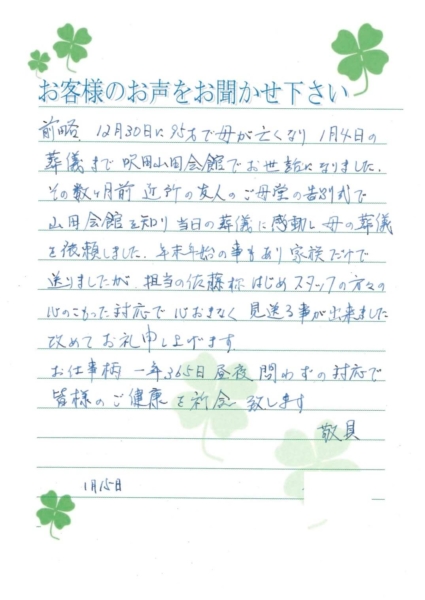 お客様のお声をお聞かせ下さい
前略、12月30日に95才で母が亡くなり 1月4日の
葬儀まで 吹田山田会館でお世話になりました。
その数ヶ月前 近所の友人のご母堂の告別式で
山田会館を知り 当日の葬儀に感動し 母の葬儀
を依頼しました。年末年始の事もあり 家族だけで
送りましたが 担当の佐藤様はじめスタッフの方々の
心のこもった対応で 心おきなく 見送る事が出来ました
改めて お礼申し上げます。
お仕事柄 一年365日 昼夜問わずの対応で
皆様のご健康を祈念致します
敬具
1月15日